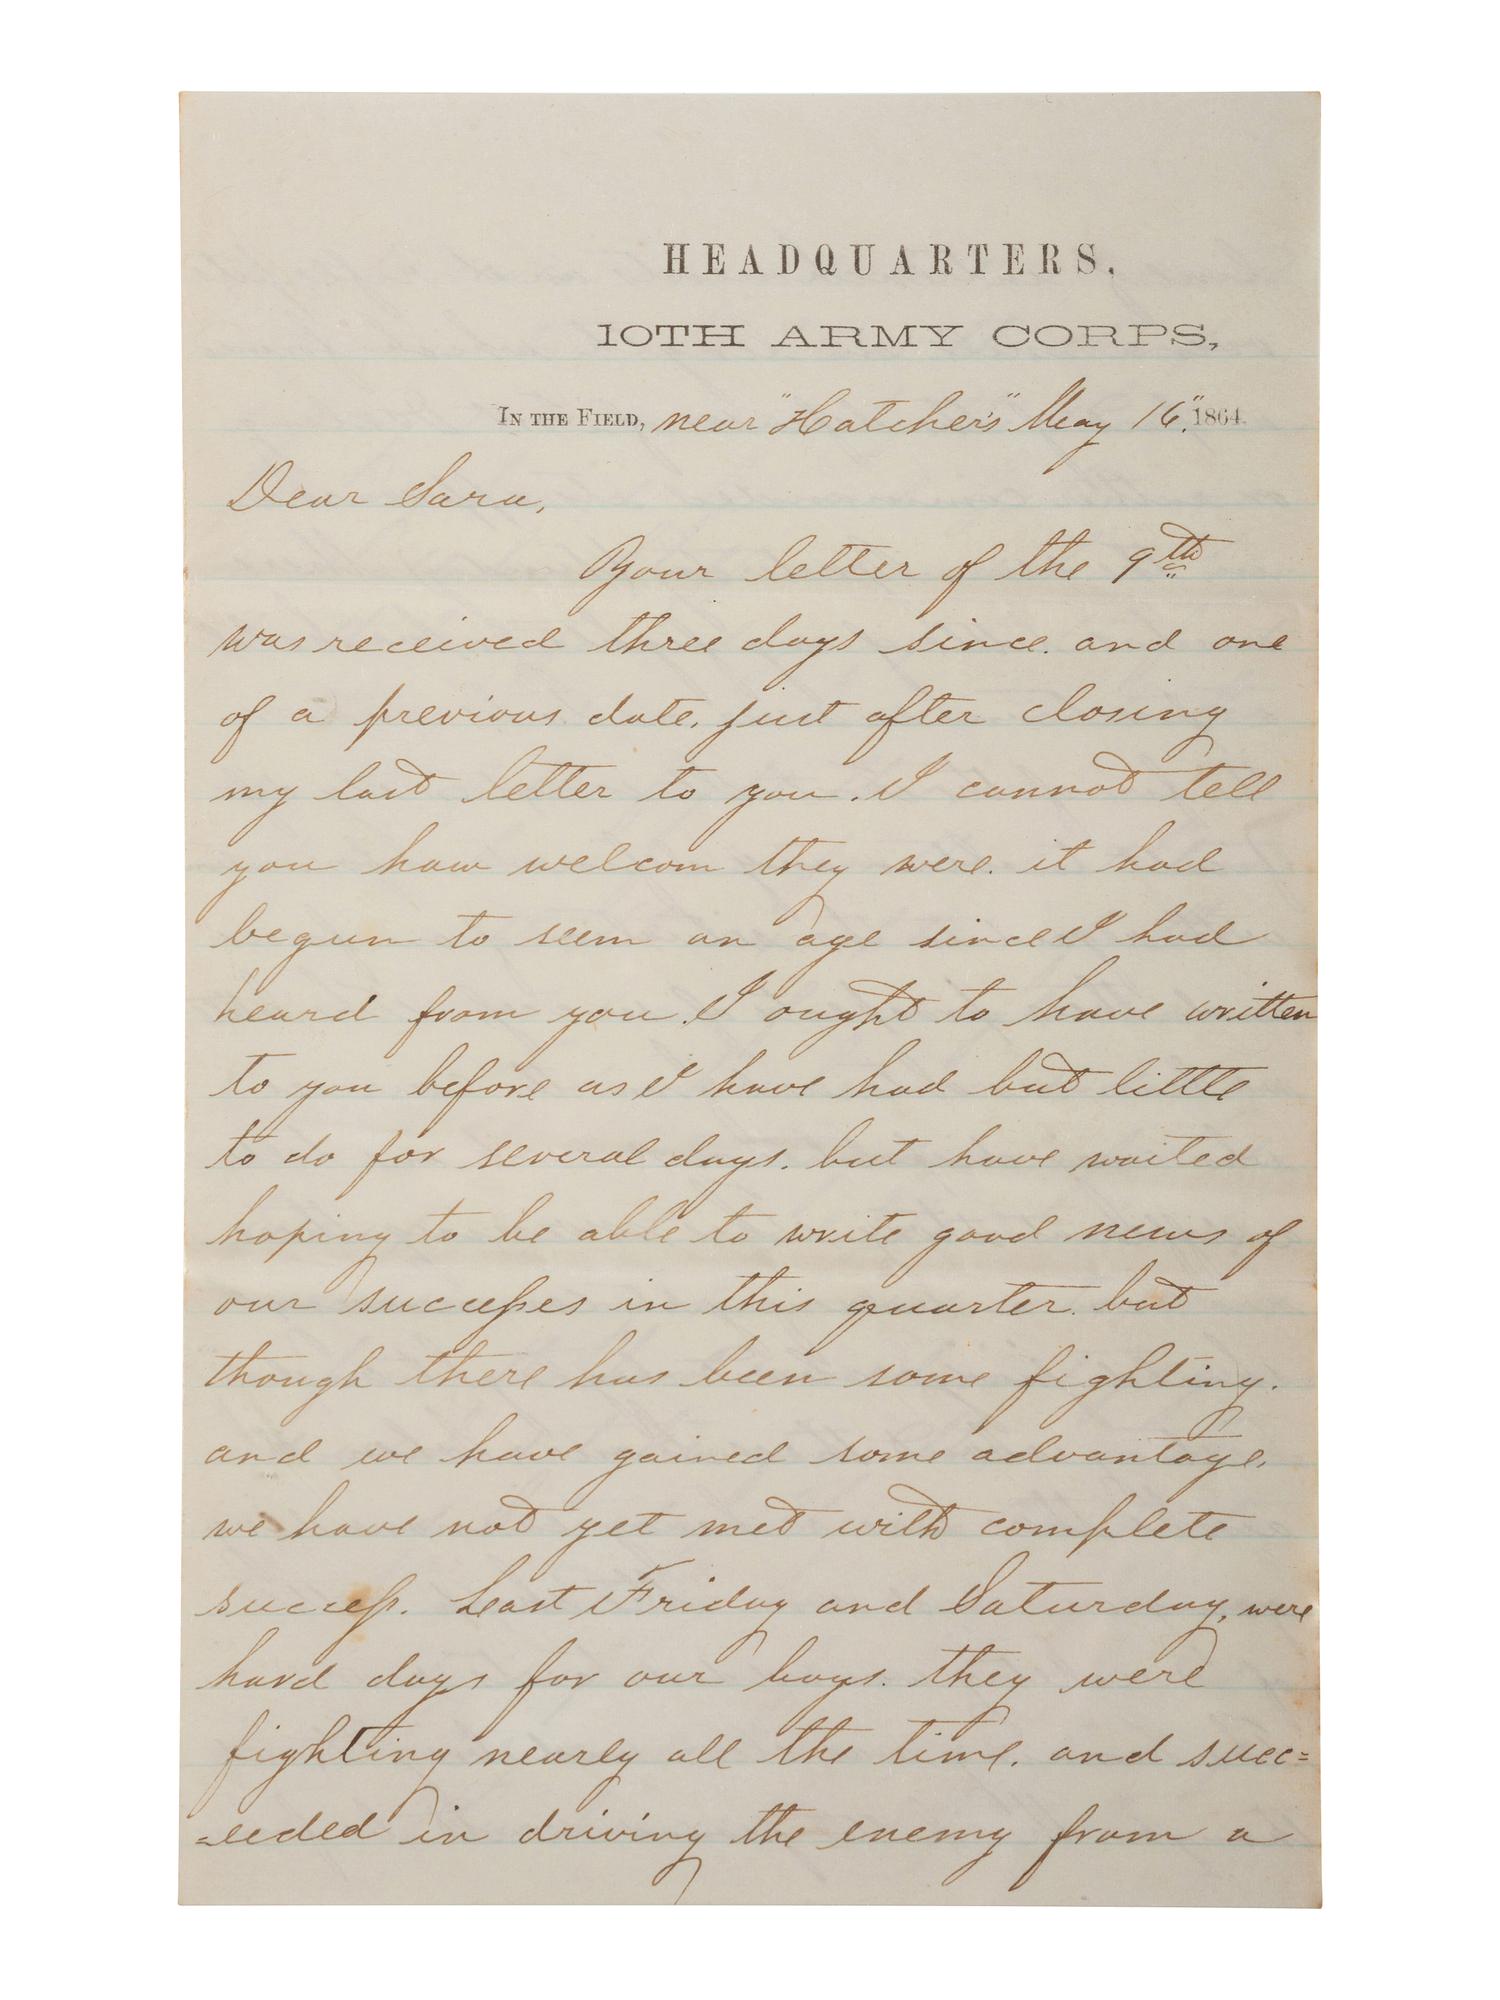 HEADQUARTERS,
10TH ARMY CORPS,
IN THE FIELD, near "Hatcher's" May 16" 1864.
Dear Sara,
Your letter of the 9th
was received three days since. and one
of a previous date. just after closing
my last letter to you. I cannot tell
you how welcom they were. it had
begun to seem an age since I had
heard from you. I ought to have written
to you before as I have had but little
to do for several days. but have waited
hoping to be able to write good news of
our successes in this quarter. but
though there has been some fighting.
and we have gained some advantage.
we have not yet met with complete
success. Last Friday and Saturday, were
hard days for our boys. they were
fighting nearly all the time. and succ=
=eeded in driving the enemy from a